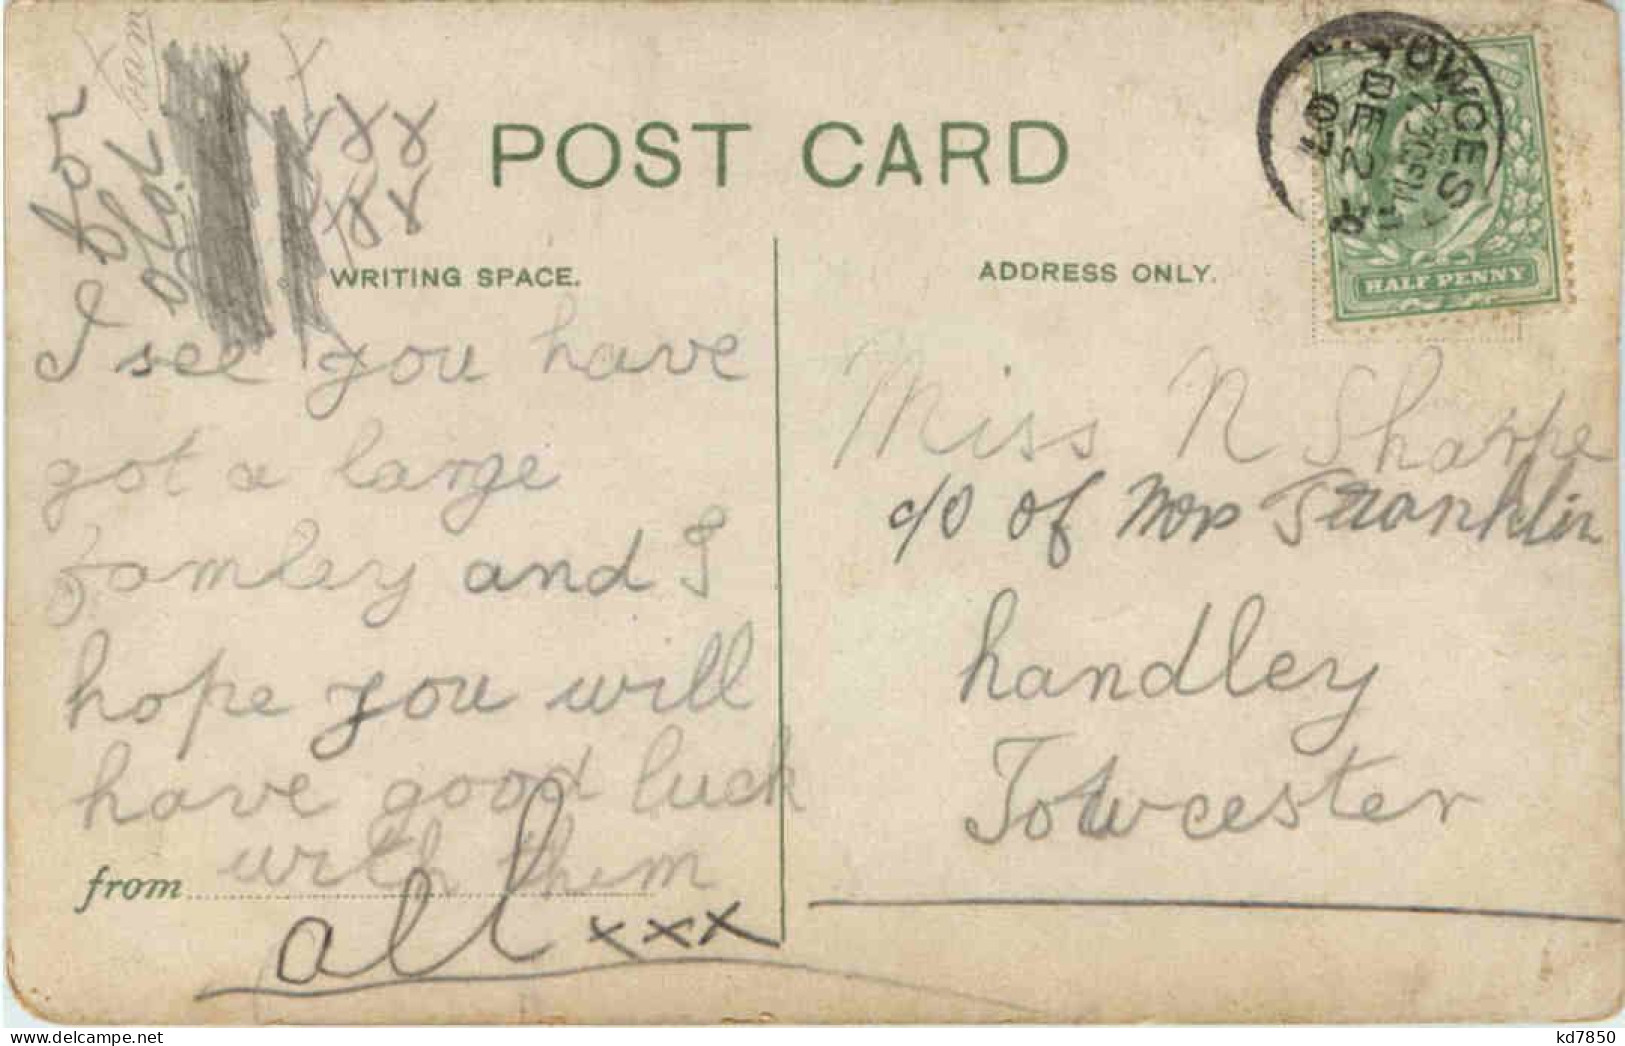 POST CARD
WRITING SPACE.
ADDRESS ONLY.
for
old
I see you have
got a large
famley and I
hope you will
have good luck
with them
from
all xxx
Miss N Sharpe
c/o of Mrs Franklin
handley
Towcester
TOWCES
DE 2
07
HALF PENNY
kd7850